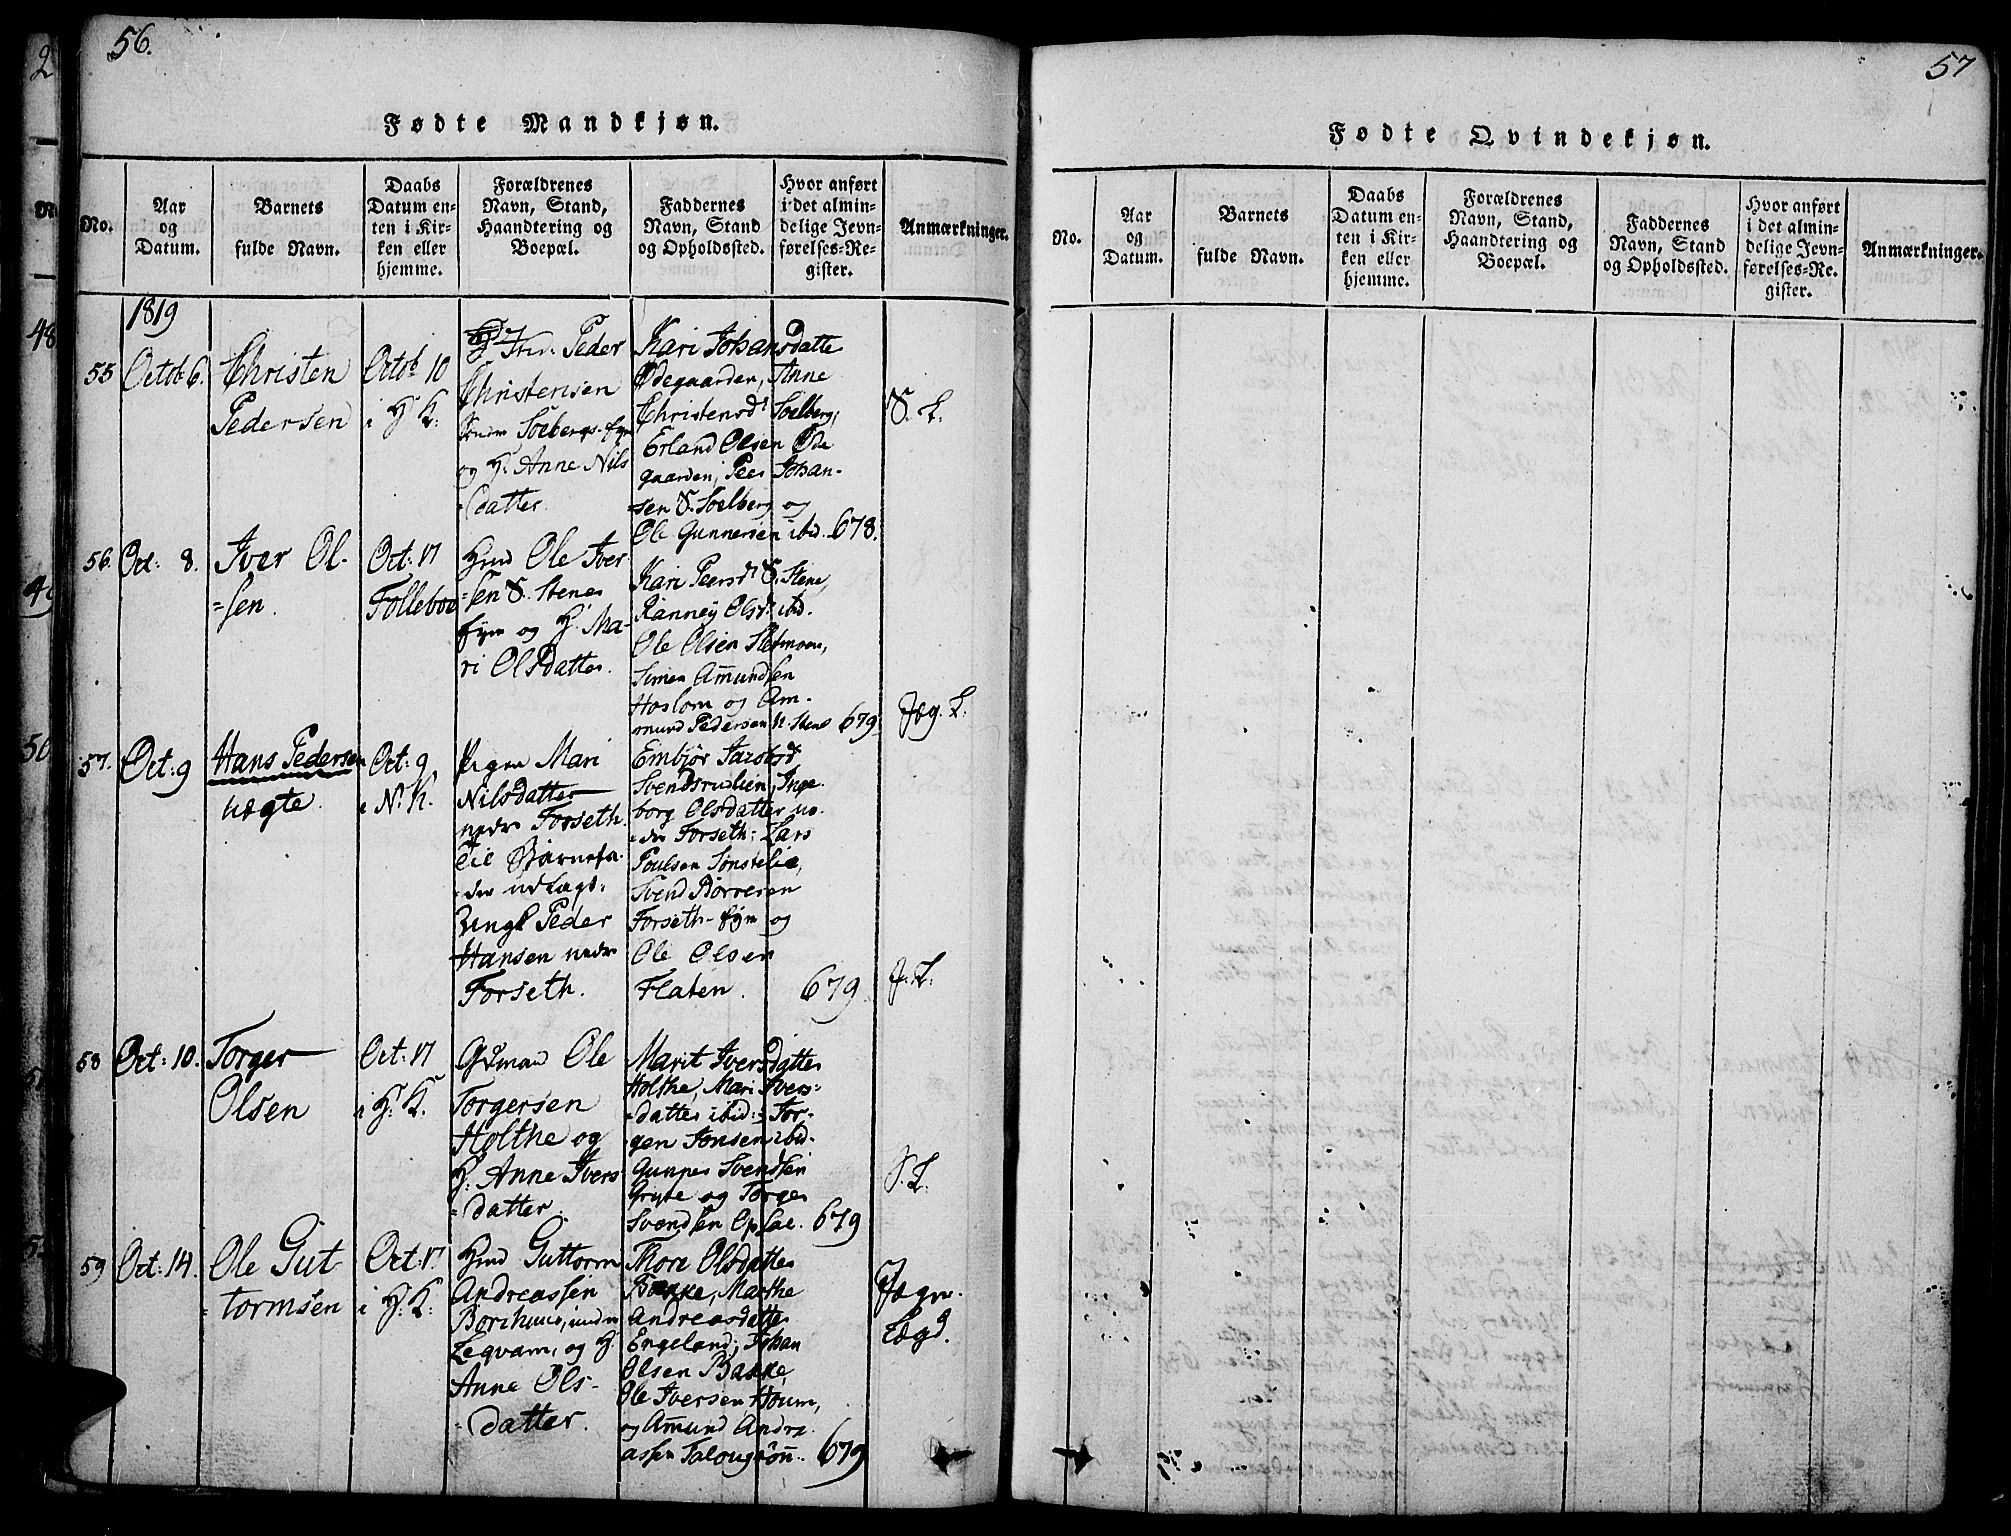 56.
Fødte Mandkjøn.
No.
Aar
og
Datum.
Barnets
fulde Navn.
Daabs
Datum en-
ten i Kir-
ken eller
hjemme.
Forældrenes
Navn, Stand,
Haandtering og
Boepæl.
Faddernes
Navn, Stand
og Opholdssted.
Hvor anført
i det almin-
delige Jevn-
førelses-Re-
gister.
Anmærkninger.
1819
55
Octob: 6.
Christen
Pedersen
Octob 10
i H: K:
Peder
Christensen
Soebergs-
og H. Anne Nils
-datter.
Kari Johansdatte
Ødegaarden, Anne
Christensd Soelberg,
Erland Olsen Øde
gaarden, Peer Johan-
sen S. Soelberg og
Ole Gunnersen ibd. 678.
S. L.
56.
Oct: 8.
Iver Ol-
=sen.
Oct: 17
Folleboe
Hmd Ole Iver
=sen S. Stenes
Ejm og H. Ma-
ri Olsdatter.
Kari Peersd S. Stene,
Ranney Olsd. ibd.
Ole Olsen Sletmoen,
Simen Amundsen
Hoslom og Am-
mund Pedersen N. Stene 679
Jæg. L.
57.
Oct: 9
Hans Pedersen
uægte.
Oct: 9
i N. K.
Pigen Mari
Nilsdatter
nedre Forseth.
Til Barnefa-
-der udlagt:
Ungk Peder
Hansen nedre
Forseth.
Embjør
Svendsrudlien, Inge-
borg Olsdatter ne-
-dre Forseth: Lars
Poulsen Sønstelie,
Svend Børresen
Forseth-Ejm og
Ole Olsen
Flaten. 679
J. L.
58
Oct: 10.
Torger
Olsen
Oct: 17
i H. K.
Gdman Ole
Torgersen
Holthe og
H. Anne Ivers-
-datter.
Marit Iversdatter
Holthe, Mari Ivers-
-datter ibid: Tor-
gen Jonsen ibid.
Gunner Svendsen
Gryte og Torger
Svendsen Opsae. 679
S. L.
59
Oct: 14.
Ole Gut
-tormsen
Oct: 17
i H: K:
Hmd Guttorm
Andreassen
Borchuus, under
Legvam, og H.
Anne Ols-
-datter.
Thore Olsdatter
Bakke, Marthe
Andreasdatter
Engeland, Johan
Olsen Bakke,
Ole Iversen Houm,
og Amund Andre
assen Talougrønn. 679
Jægr.
Lægd.
57
Fødte Qvindekjøn.
No.
Aar
og
Datum.
Barnets
fulde Navn.
Daabs
Datum en-
ten i Kir-
ken eller
hjemme.
Forældrenes
Navn, Stand,
Haandtering og
Boepæl.
Faddernes
Navn, Stand
og Opholdssted.
Hvor anført
i det almin-
delige Jevn-
førelses-Re-
gister.
Anmærkninger.